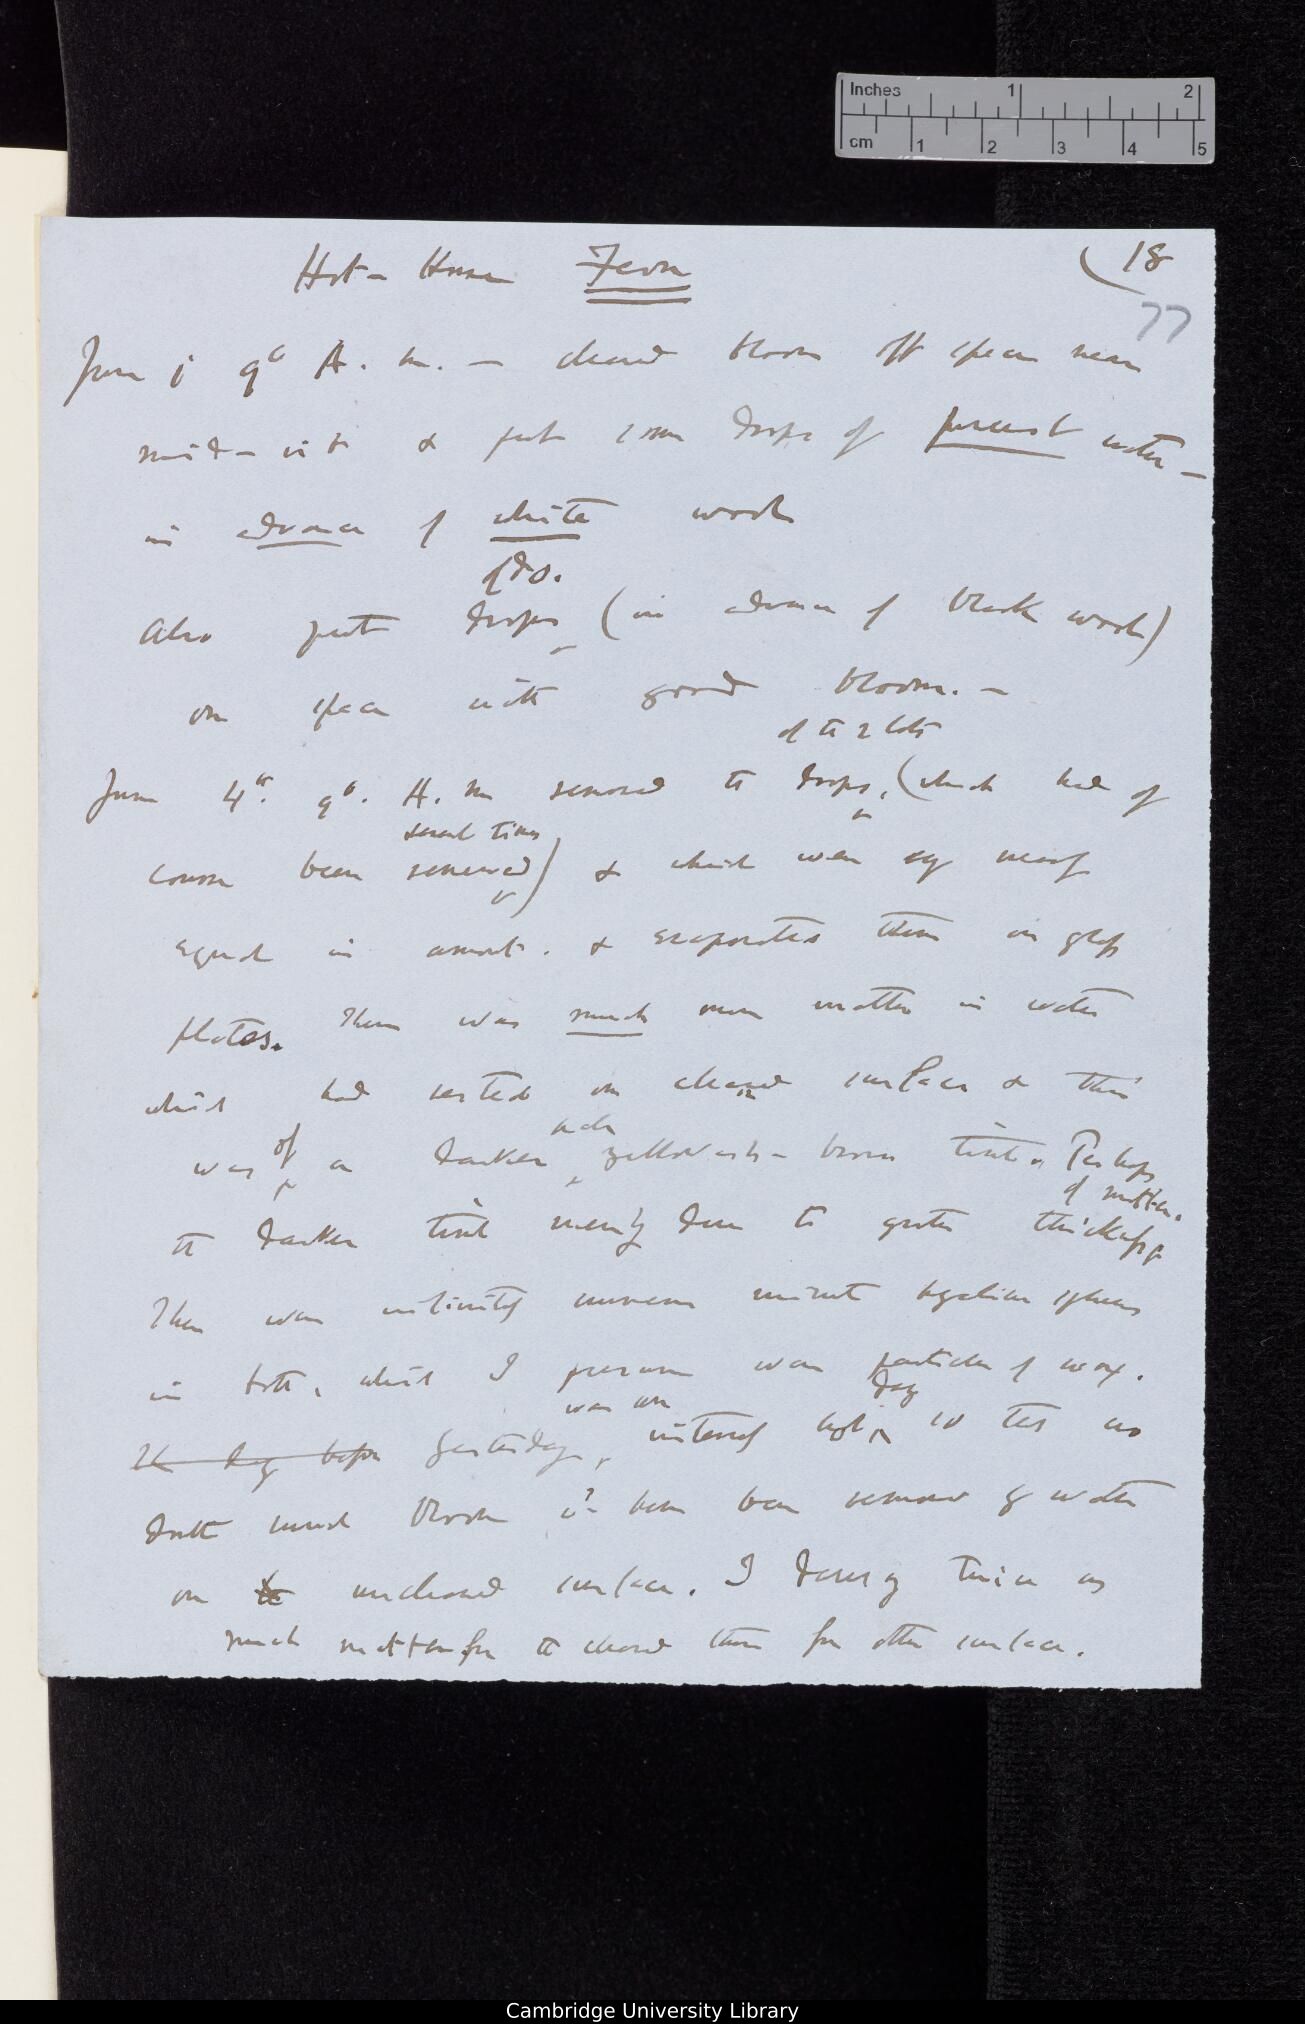 Inches 1 2
cm 1 2 3 4 5
Hot-House Fern (18
77
June 1 9° A. m. — cleaned bloom off space near
mid-rib & put some drops of purest water —
in advance of white wool
of do.
Also put drops (in advance of black wool)
on space with good bloom. —
of the 2 lots
June 4th. 9°. A. m removed the drops, (which had of
several times
course been renewed) & which were nearly
equal in amount. & evaporated them on glass
plates. There was much more matter in water
which had rested on cleaned surface & this
was of a darker yellowish-brown tint. Perhaps
of matter.
the darker tint merely due to greater thickness
There were infinitely numerous minute hyaline spheres
in both, which I presume were particles of wax.
was an day
The day before Yesterday, intensely hot, so that no
doubt much bloom have been removed by water
on the uncleaned surface. I twice as
much matter from the cleaned than from other surface.
Cambridge University Library